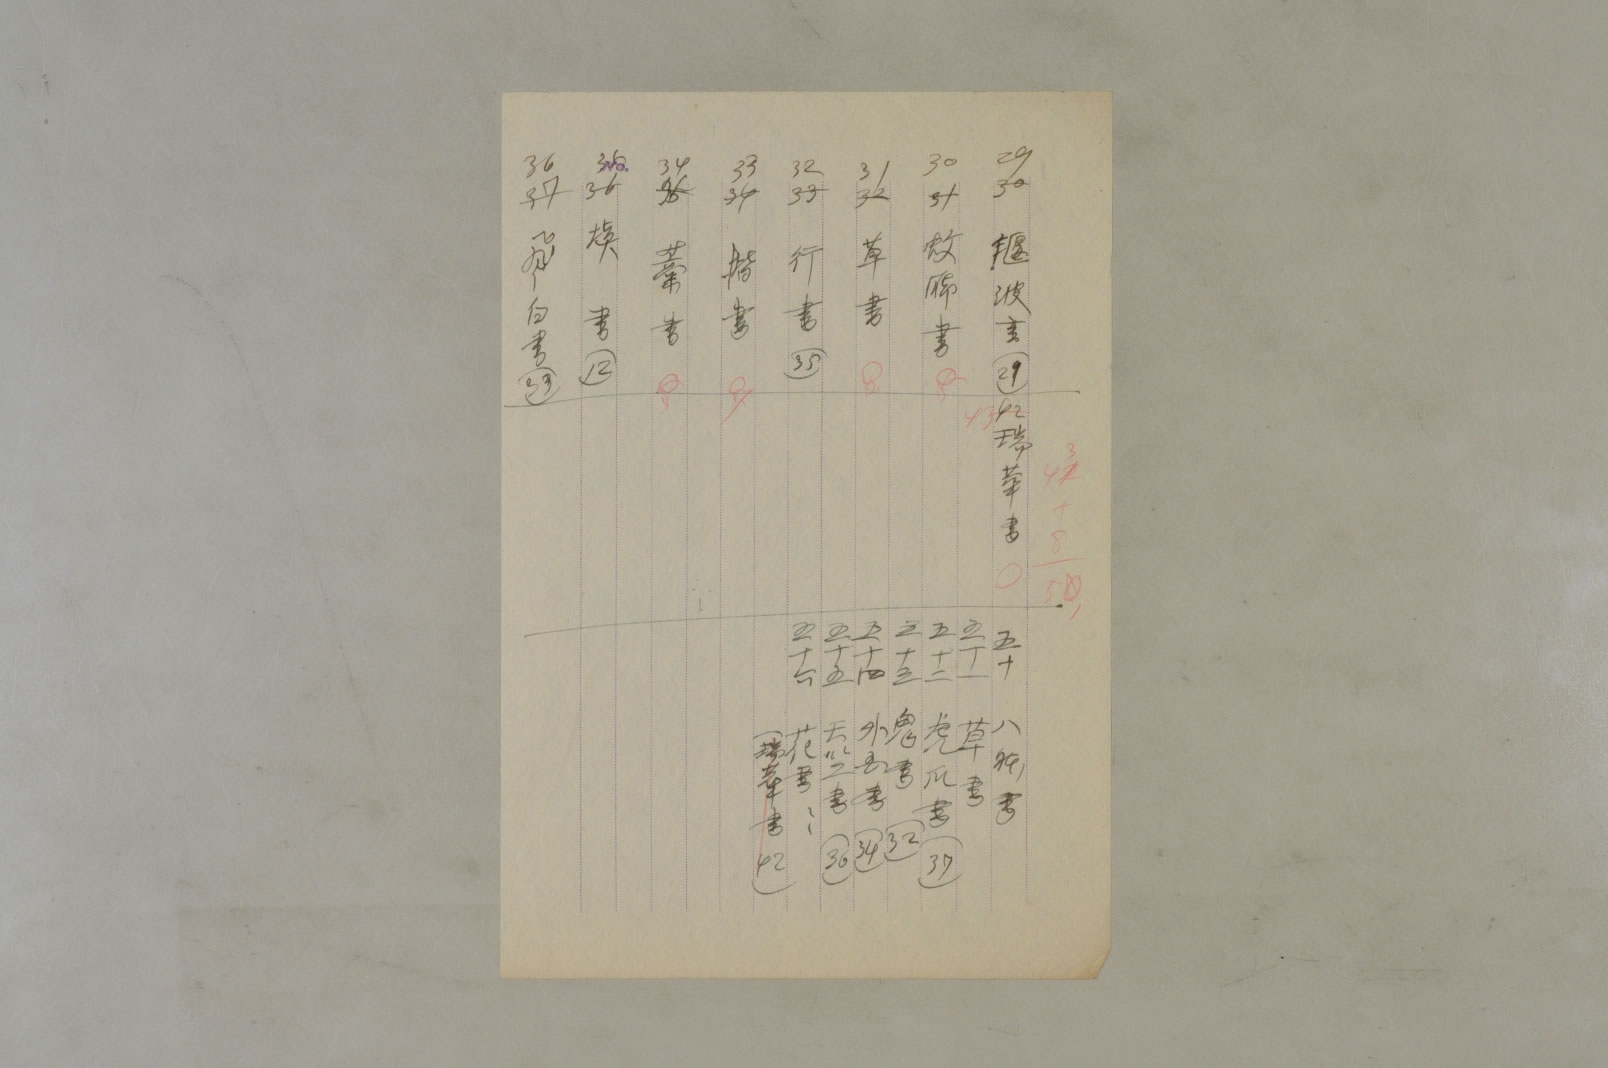 29 30 偃波書 (29)
30 31 蚊脚書
31 32 草書
32 33 行書 (35)
33 34 揩書
34 35 藁書
35 36 横書 (12)
36 37 飛白書 (39)
No.
43
42 瑞華書
+
8
五十 八 書
五十一 草書
五十二 虎爪書 (37)
五十三 鬼書 (32)
五十四 外国書 (34)
五十五 天竺書 (36)
五十六 花書
(瑞華書 42)